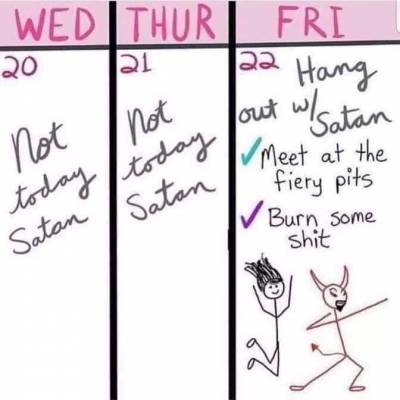 WED THUR FRI
20
Not
today
Satan
21
Not
today
Satan
22 Hang
out w/
Satan
✓Meet at the
fiery pits
✓Burn some
shit